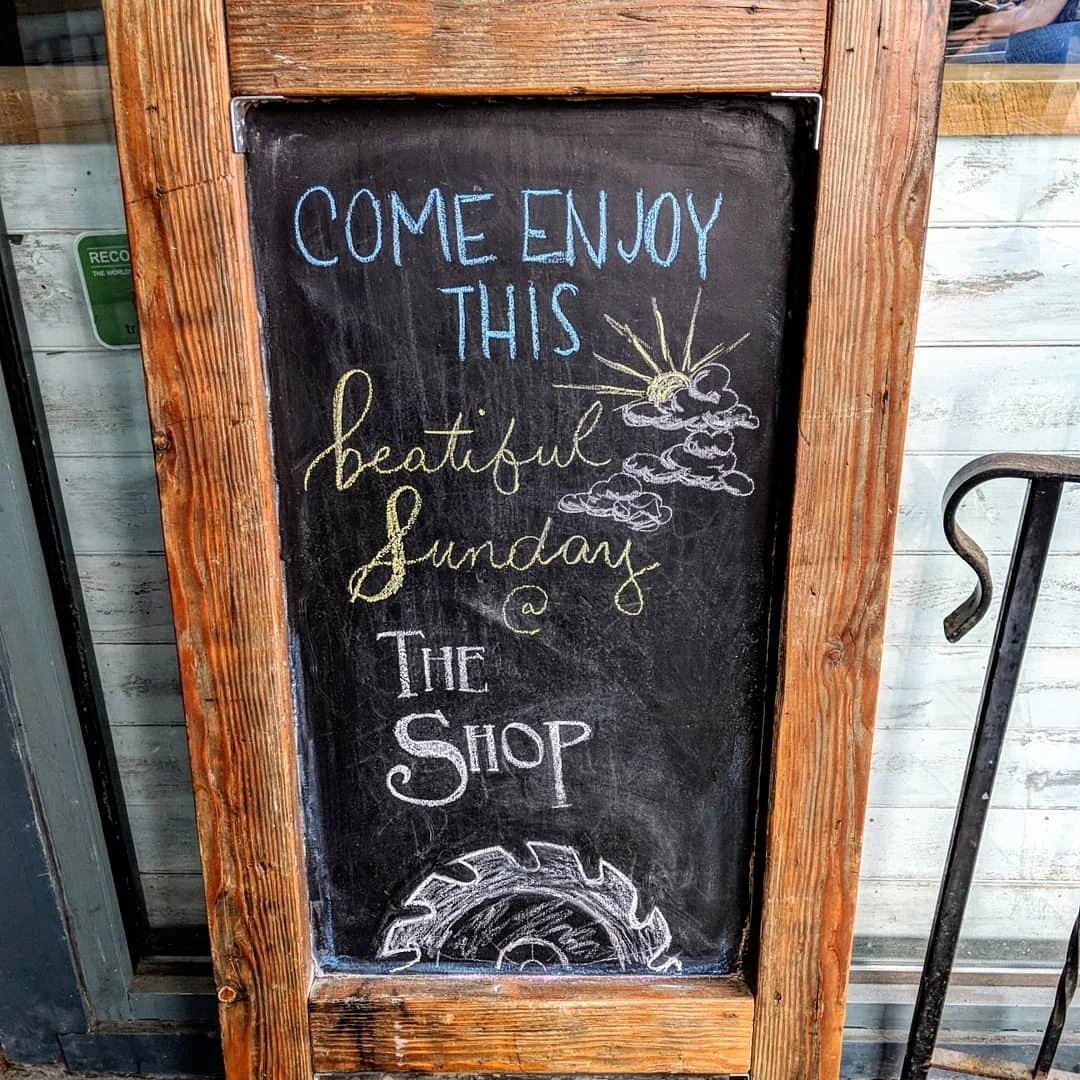 COME ENJOY
THIS
beatiful
Sunday
@
THE
SHOP
RECO
THE WORLD'